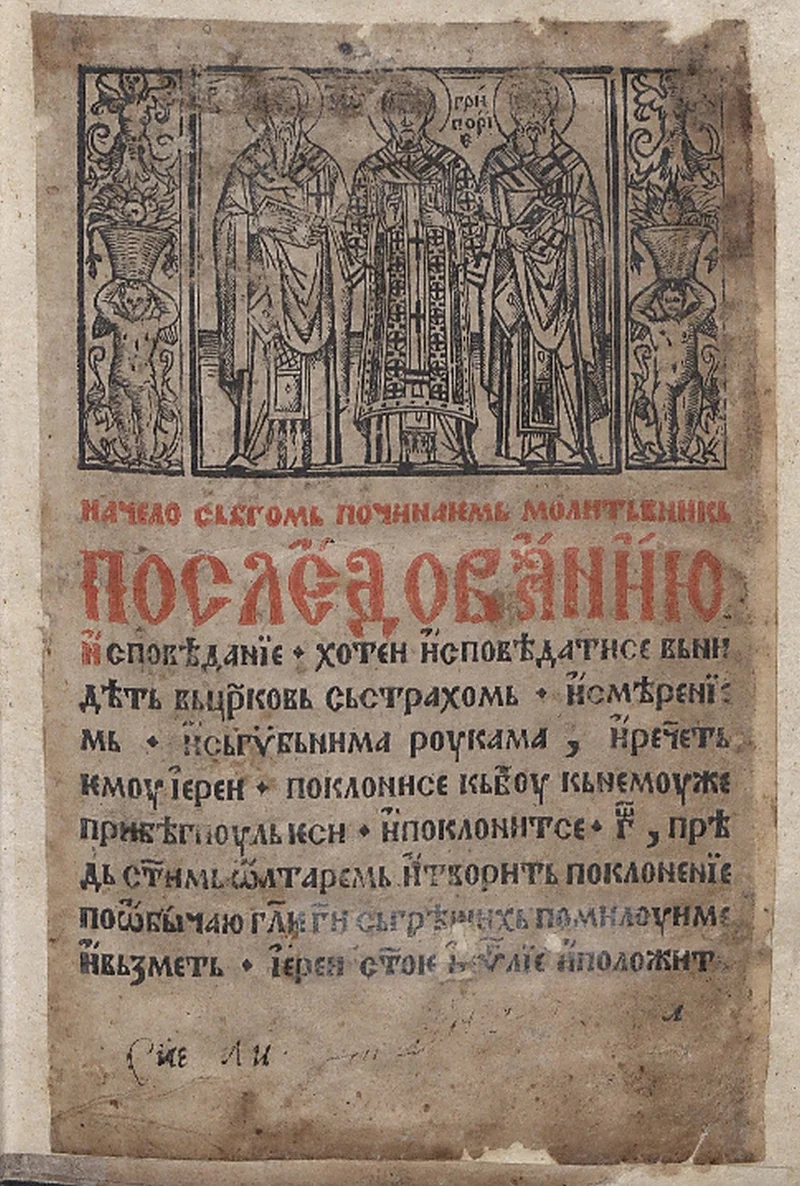 гри
гори
е
начело сьбгомь починаемь молитьвникь
послѣдованїю
н҆споvѣданїе · хотен н҆сповѣдатисе вьни
дѣть вьцр҃ковь сьстрахомь · н҆смѣренїе
мь · н҆сьгѵбьнима роукама , н҆рече҃ть
ѥмоу їерен · поклонисе кьб҃оу кьнемоуже
прибѣгноуль ѥси · н҆поклонитсе · г҃ , прѣ
дь ст҃имь ѡлтаремь н҆творить поклоненїе
поѡбычаю гл҃ѥ г҃и сьгрѣшихь помилоуиме
н҆вьзметь · їерен ст҃оѥ положит